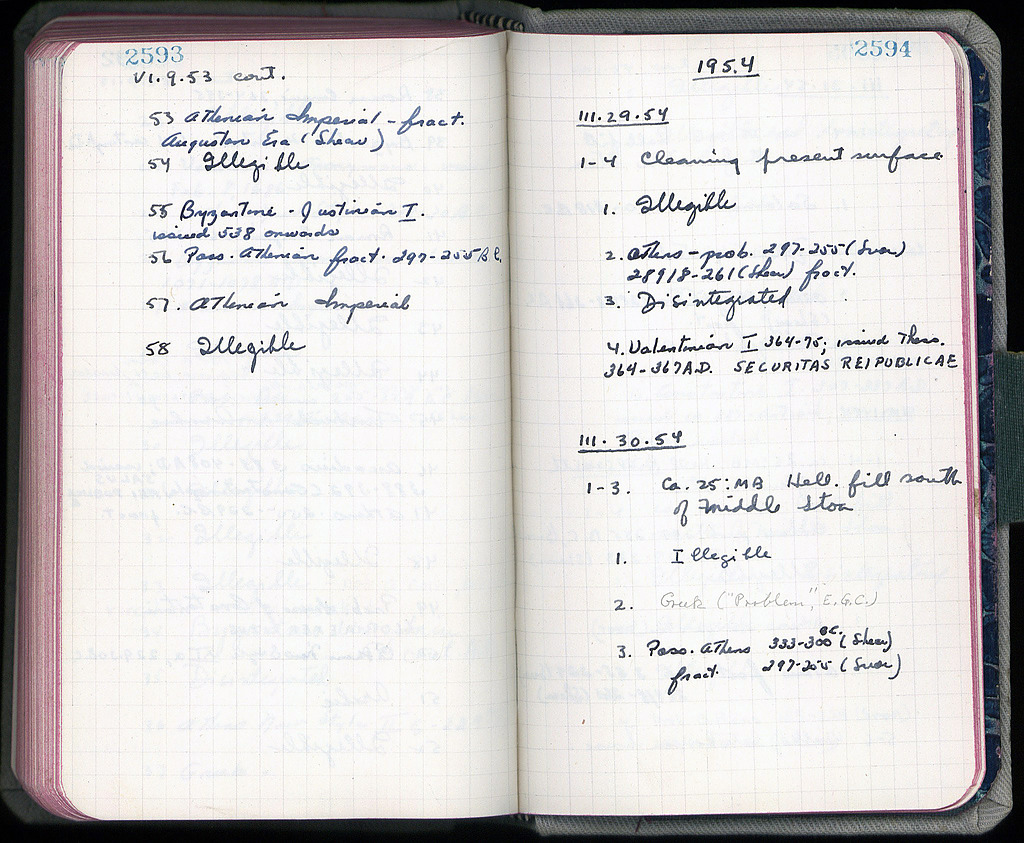 2593
VI.9.53 cont.
53 Athenian Imperial - fract.
Augustan Era (Shear)
54 Illegible
55 Byzantine - Justinian I.
issued 538 onwards
56 Poss. Athenian fract. 297-255 B.C.
57. Athenian Imperial
58 Illegible
2594
1954
III.29.54
1-4 Cleaning present surface
1. Illegible
2. Athens - prob. 297-255 (Svor)
261 (Shear) fract.
3. Disintegrated
4. Valentinian I 364-75, issued Thess.
364-367 A.D. SECURITAS REIPUBLICAE
III.30.54
1-3. Ca. 25:MA Hell. fill south
of Middle Stoa
1. Illegible
2. Greek ("Problem", E.G.C.)
3. Poss. Athens 333-300 B.C. (Shear)
fract. 297-255 (Svor)